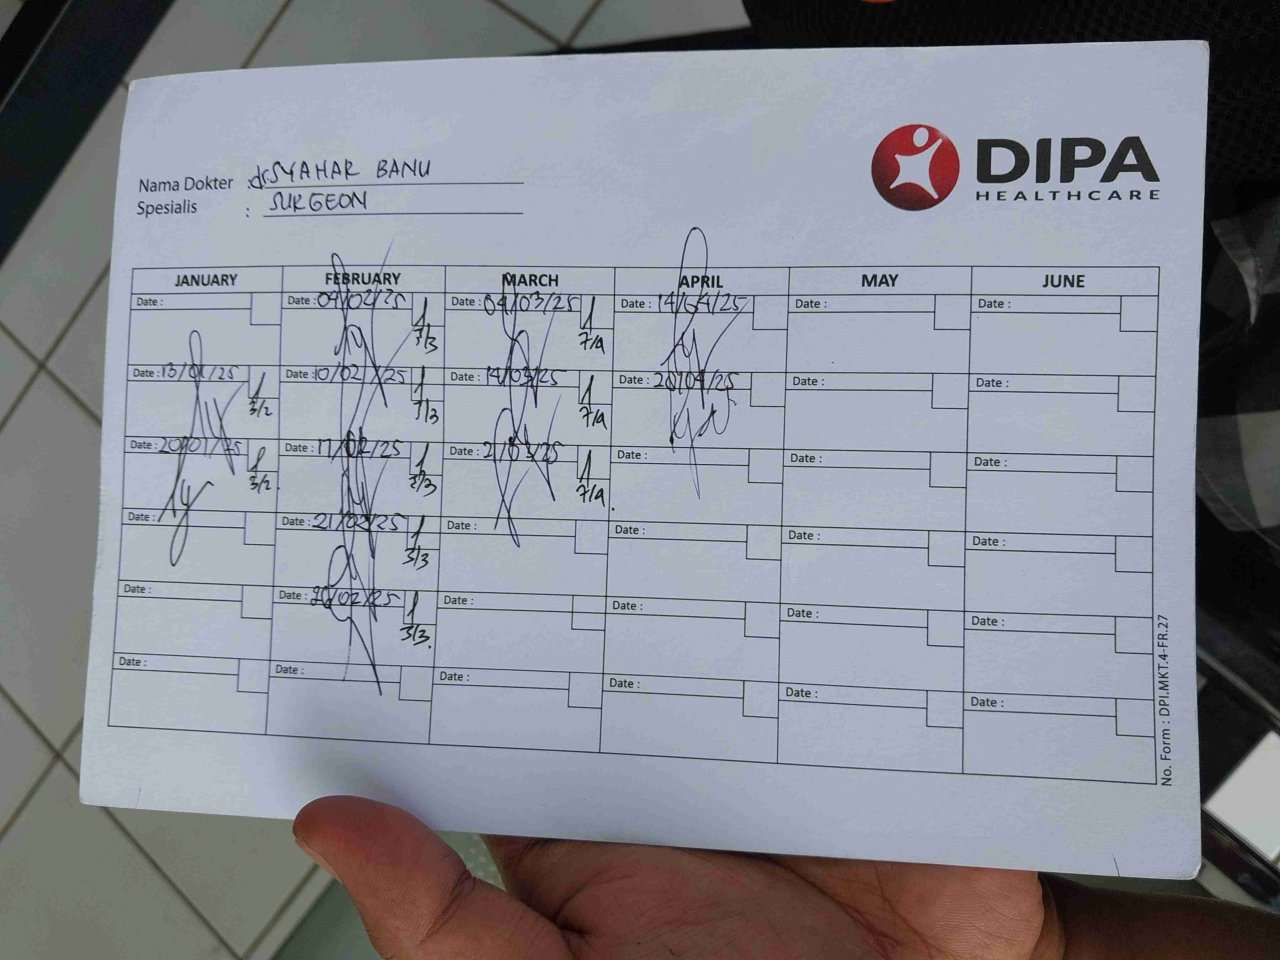 DIPA
HEALTHCARE
Nama Dokter : dr. SYAHAR BANU
Spesialis : SURGEON
JANUARY FEBRUARY MARCH APRIL MAY JUNE
Date : Date : 04/02/25 Date : 04/03/25 Date : 14/04/25 Date : Date :
3/3 7/4
Date : 13/01/25 Date : 10/02/25 Date : 14/03/25 Date : Date : Date :
3/2 3/3 7/4
Date : 20/01/25 Date : 17/02/25 Date : 21/03/25 Date : Date : Date :
3/2 3/3 7/4
Date : Date : 21/02/25 Date : Date : Date : Date :
3/3
Date : Date : /02/25 Date : Date : Date : Date :
3/3
Date : Date : Date : Date : Date : Date :
No. Form : DPI.MKT.4-FR.27